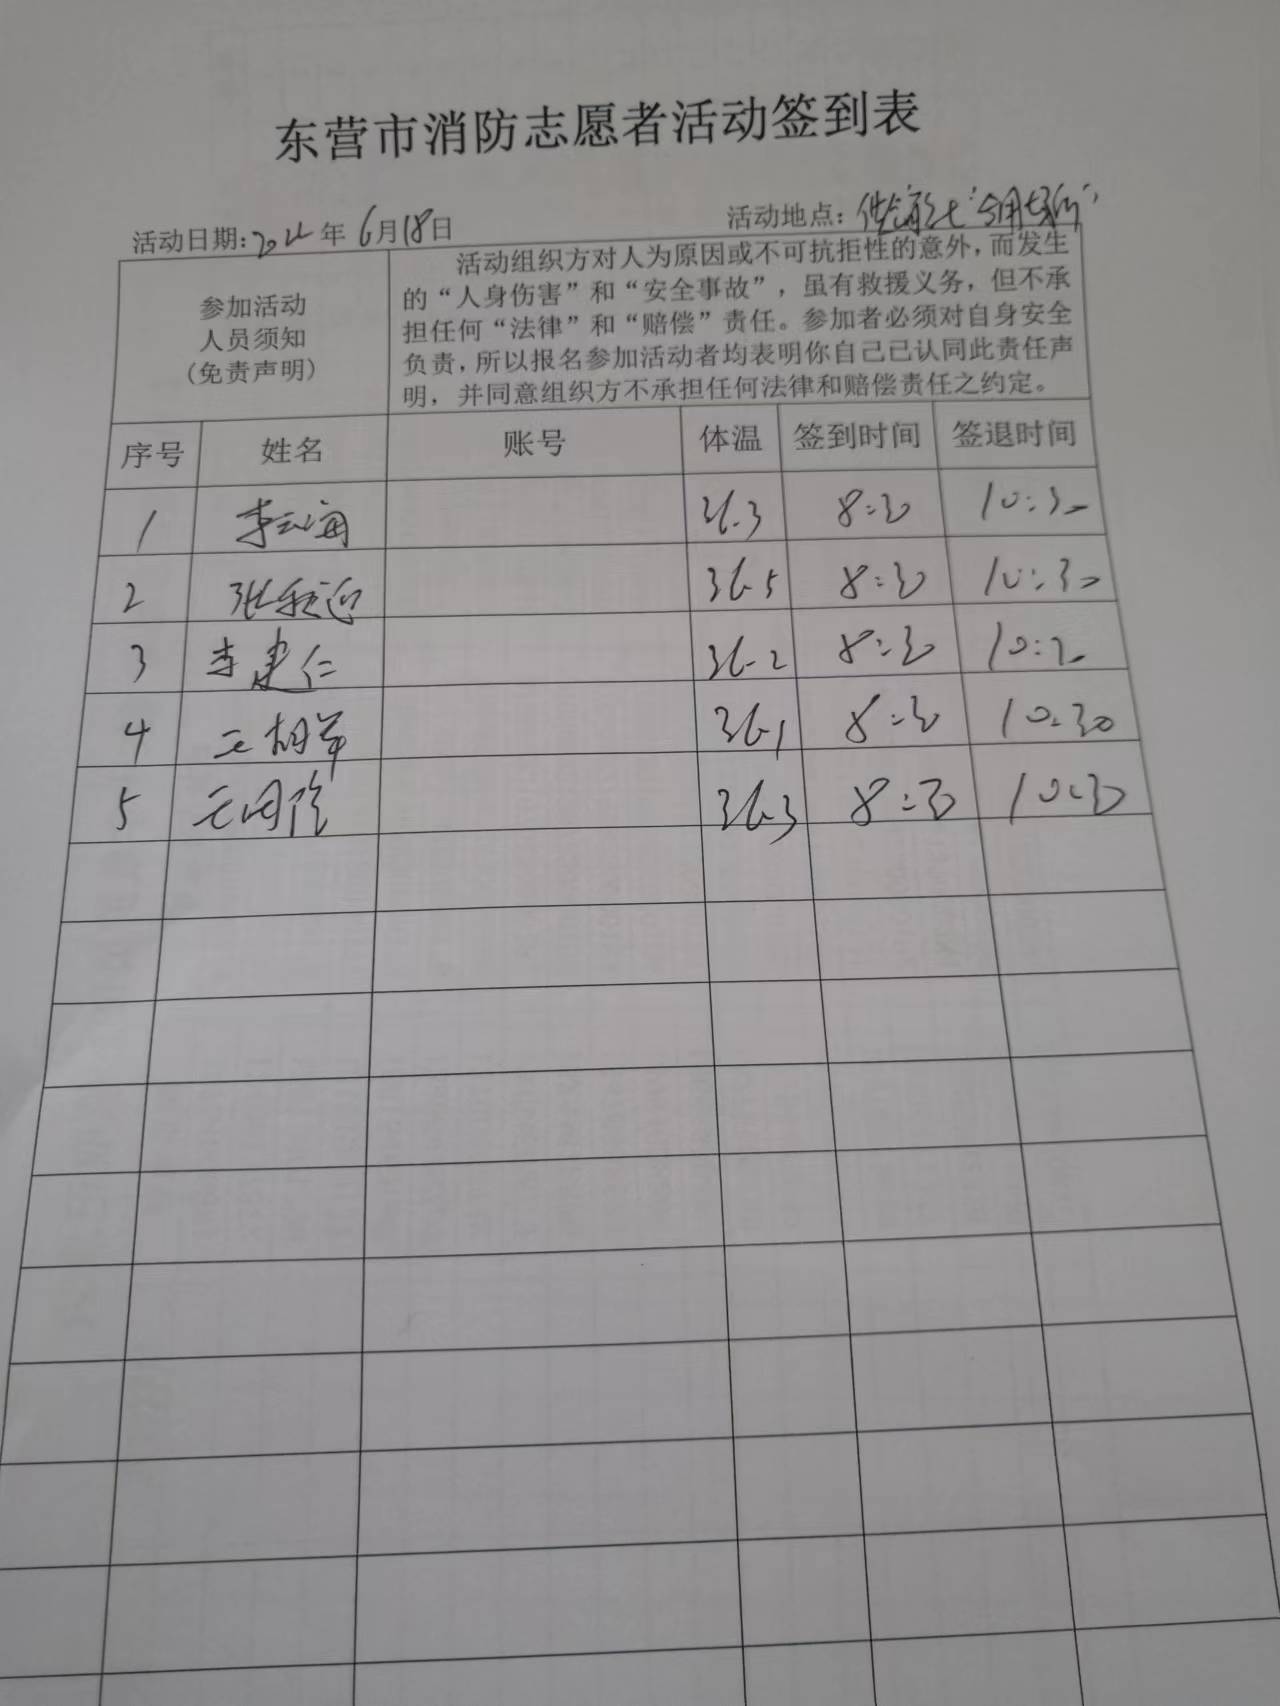 东营市消防志愿者活动签到表
活动日期: 年 6月18日 活动地点:
参加活动
人员须知
(免责声明)
活动组织方对人为原因或不可抗拒性的意外，而发生
的“人身伤害”和“安全事故”，虽有救援义务，但不承
担任何“法律”和“赔偿”责任。参加者必须对自身安全
负责，所以报名参加活动者均表明你自己已认同此责任声
明，并同意组织方不承担任何法律和赔偿责任之约定。
序号 姓名 账号 体温 签到时间 签退时间
1 李云海 36.3 8:30 10:30
2 36.5 8:30 10:30
3 李建仁 36.2 8:30 10:30
4 王胡军 36.1 8:30 10:30
5 36.3 8:30 10:30